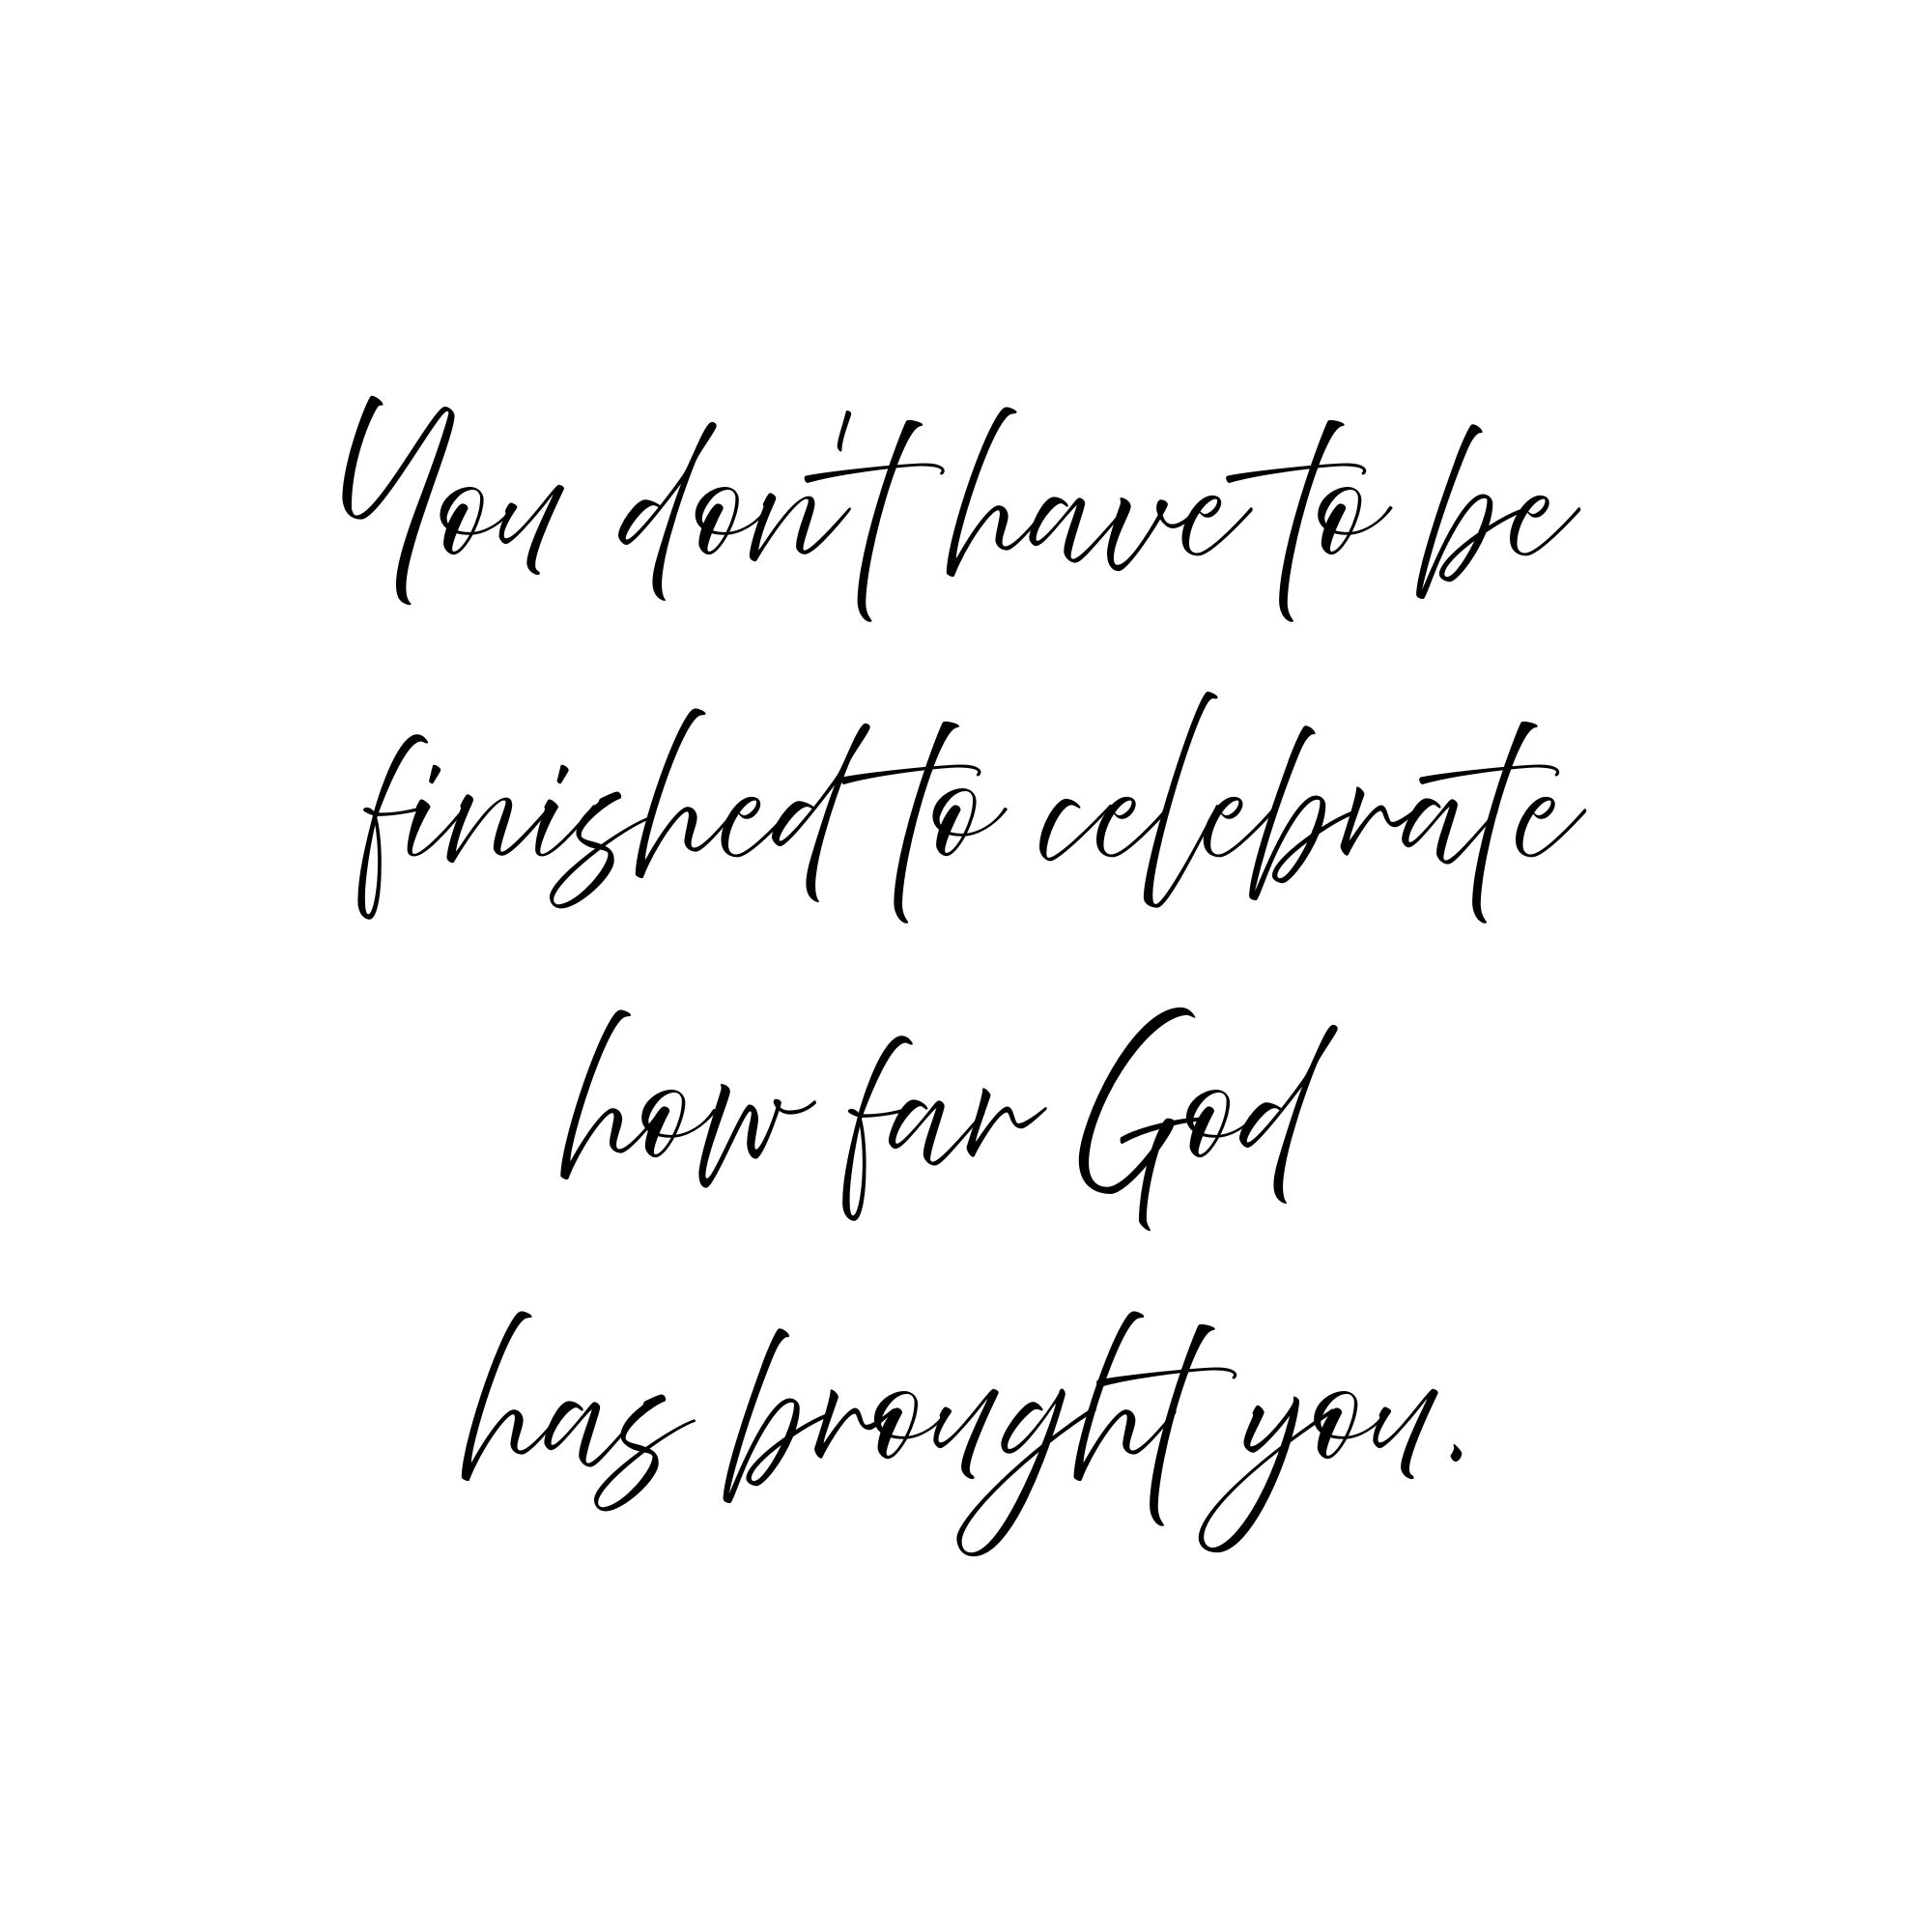 You don't have to be
finished to celebrate
how far God
has brought you.